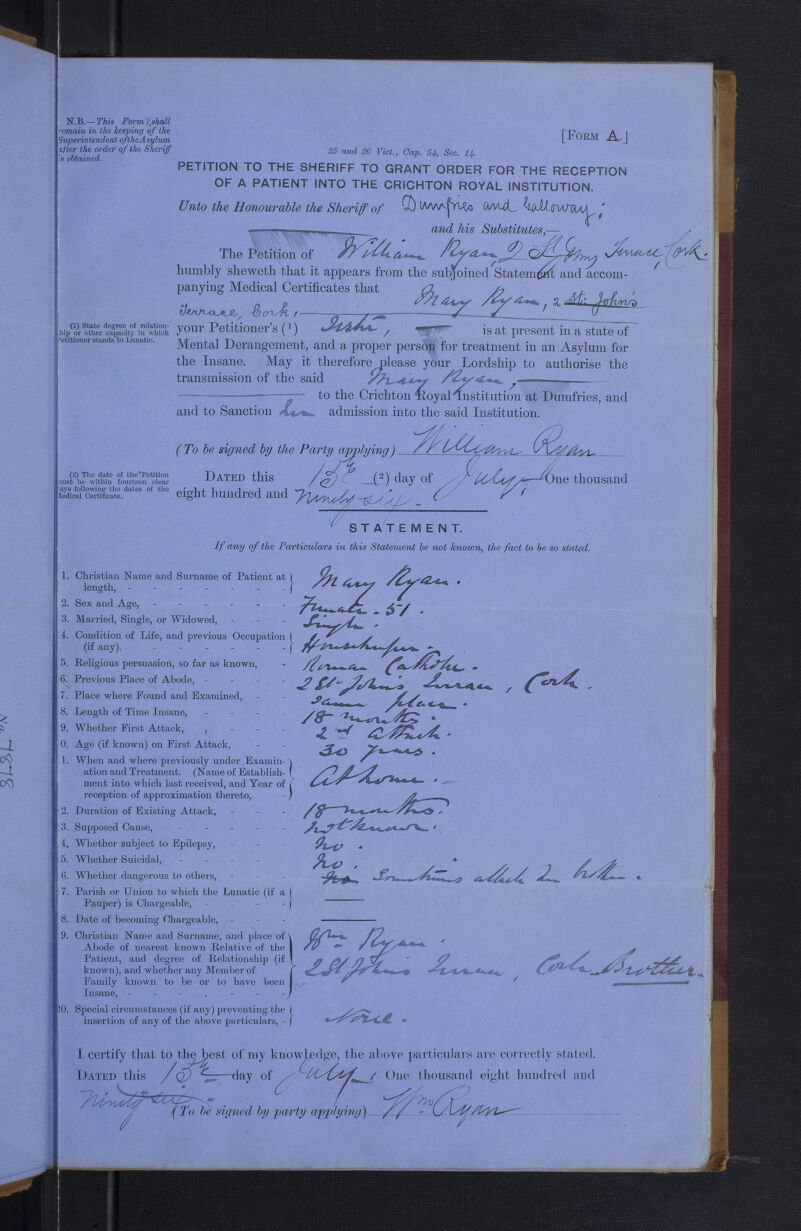 N.B.—This Form shall
remain in the keeping of the
Superintendent of the Asylum
after the order of the Sheriff
is obtained.
[FORM A.]
25 and 26 Vict., Cap. 54, Sec. 14.
PETITION TO THE SHERIFF TO GRANT ORDER FOR THE RECEPTION
OF A PATIENT INTO THE CRICHTON ROYAL INSTITUTION.
Unto the Honourable the Sheriff of Dumfries and Galloway;
and his Substitutes,—
The Petition of William Ryan, 2 St Johns Terrace, Cork.
humbly sheweth that it appears from the subjoined Statement and accom-
panying Medical Certificates that Mary Ryan, 2 St. John's
Terrace, Cork,
(1) State degree of relation-
ship or other capacity in which
Petitioner stands to Lunatic.
your Petitioner's (1) Sister, is at present in a state of
Mental Derangement, and a proper person for treatment in an Asylum for
the Insane. May it therefore please your Lordship to authorise the
transmission of the said Mary Ryan,
to the Crichton Royal Institution at Dumfries, and
and to Sanction her admission into the said Institution.
(To be signed by the Party applying) William Ryan
(2) The date of the Petition
must be within fourteen clear
days following the dates of the
Medical Certificate.
DATED this 15th (2) day of July, One thousand
eight hundred and Ninety six.
STATEMENT.
If any of the Particulars in this Statement be not known, the fact to be so stated.
1. Christian Name and Surname of Patient at
length, - Mary Ryan.
2. Sex and Age, - Female - 51.
3. Married, Single, or Widowed, - Single.
4. Condition of Life, and previous Occupation
(if any). - Housekeeper.
5. Religious persuasion, so far as known, - Roman Catholic.
6. Previous Place of Abode, - 2 St. John's Terrace, Cork.
7. Place where Found and Examined, - Same place.
8. Length of Time Insane, - 18 months.
9. Whether First Attack, - 2nd attack.
0. Age (if known) on First Attack, 30 years.
1. When and where previously under Examin-
ation and Treatment. (Name of Establish-
ment into which last received, and Year of
reception of approximation thereto, - At home.
2. Duration of Existing Attack, - 18 months.
3. Supposed Cause, - Not known.
4. Whether subject to Epilepsy, - No.
5. Whether Suicidal, - No.
6. Whether dangerous to others, - No Sometimes attacks her brother.
7. Parish or Union to which the Lunatic (if a
Pauper) is Chargeable, -
8. Date of becoming Chargeable, -
9. Christian Name and Surname, and place of
Abode of nearest known Relative of the
Patient, and degree of Relationship (if
known), and whether any Member of
Family known to be or to have been
Insane, -
Wm Ryan.
2 St John's Terrace, Cork Brother.
20. Special circumstances (if any) preventing the
insertion of any of the above particulars, - None.
I certify that to the best of my knowledge, the above particulars are correctly stated.
DATED this 15th day of July, One thousand eight hundred and
Ninety six
(To be signed by party applying) Wm Ryan
No 7878